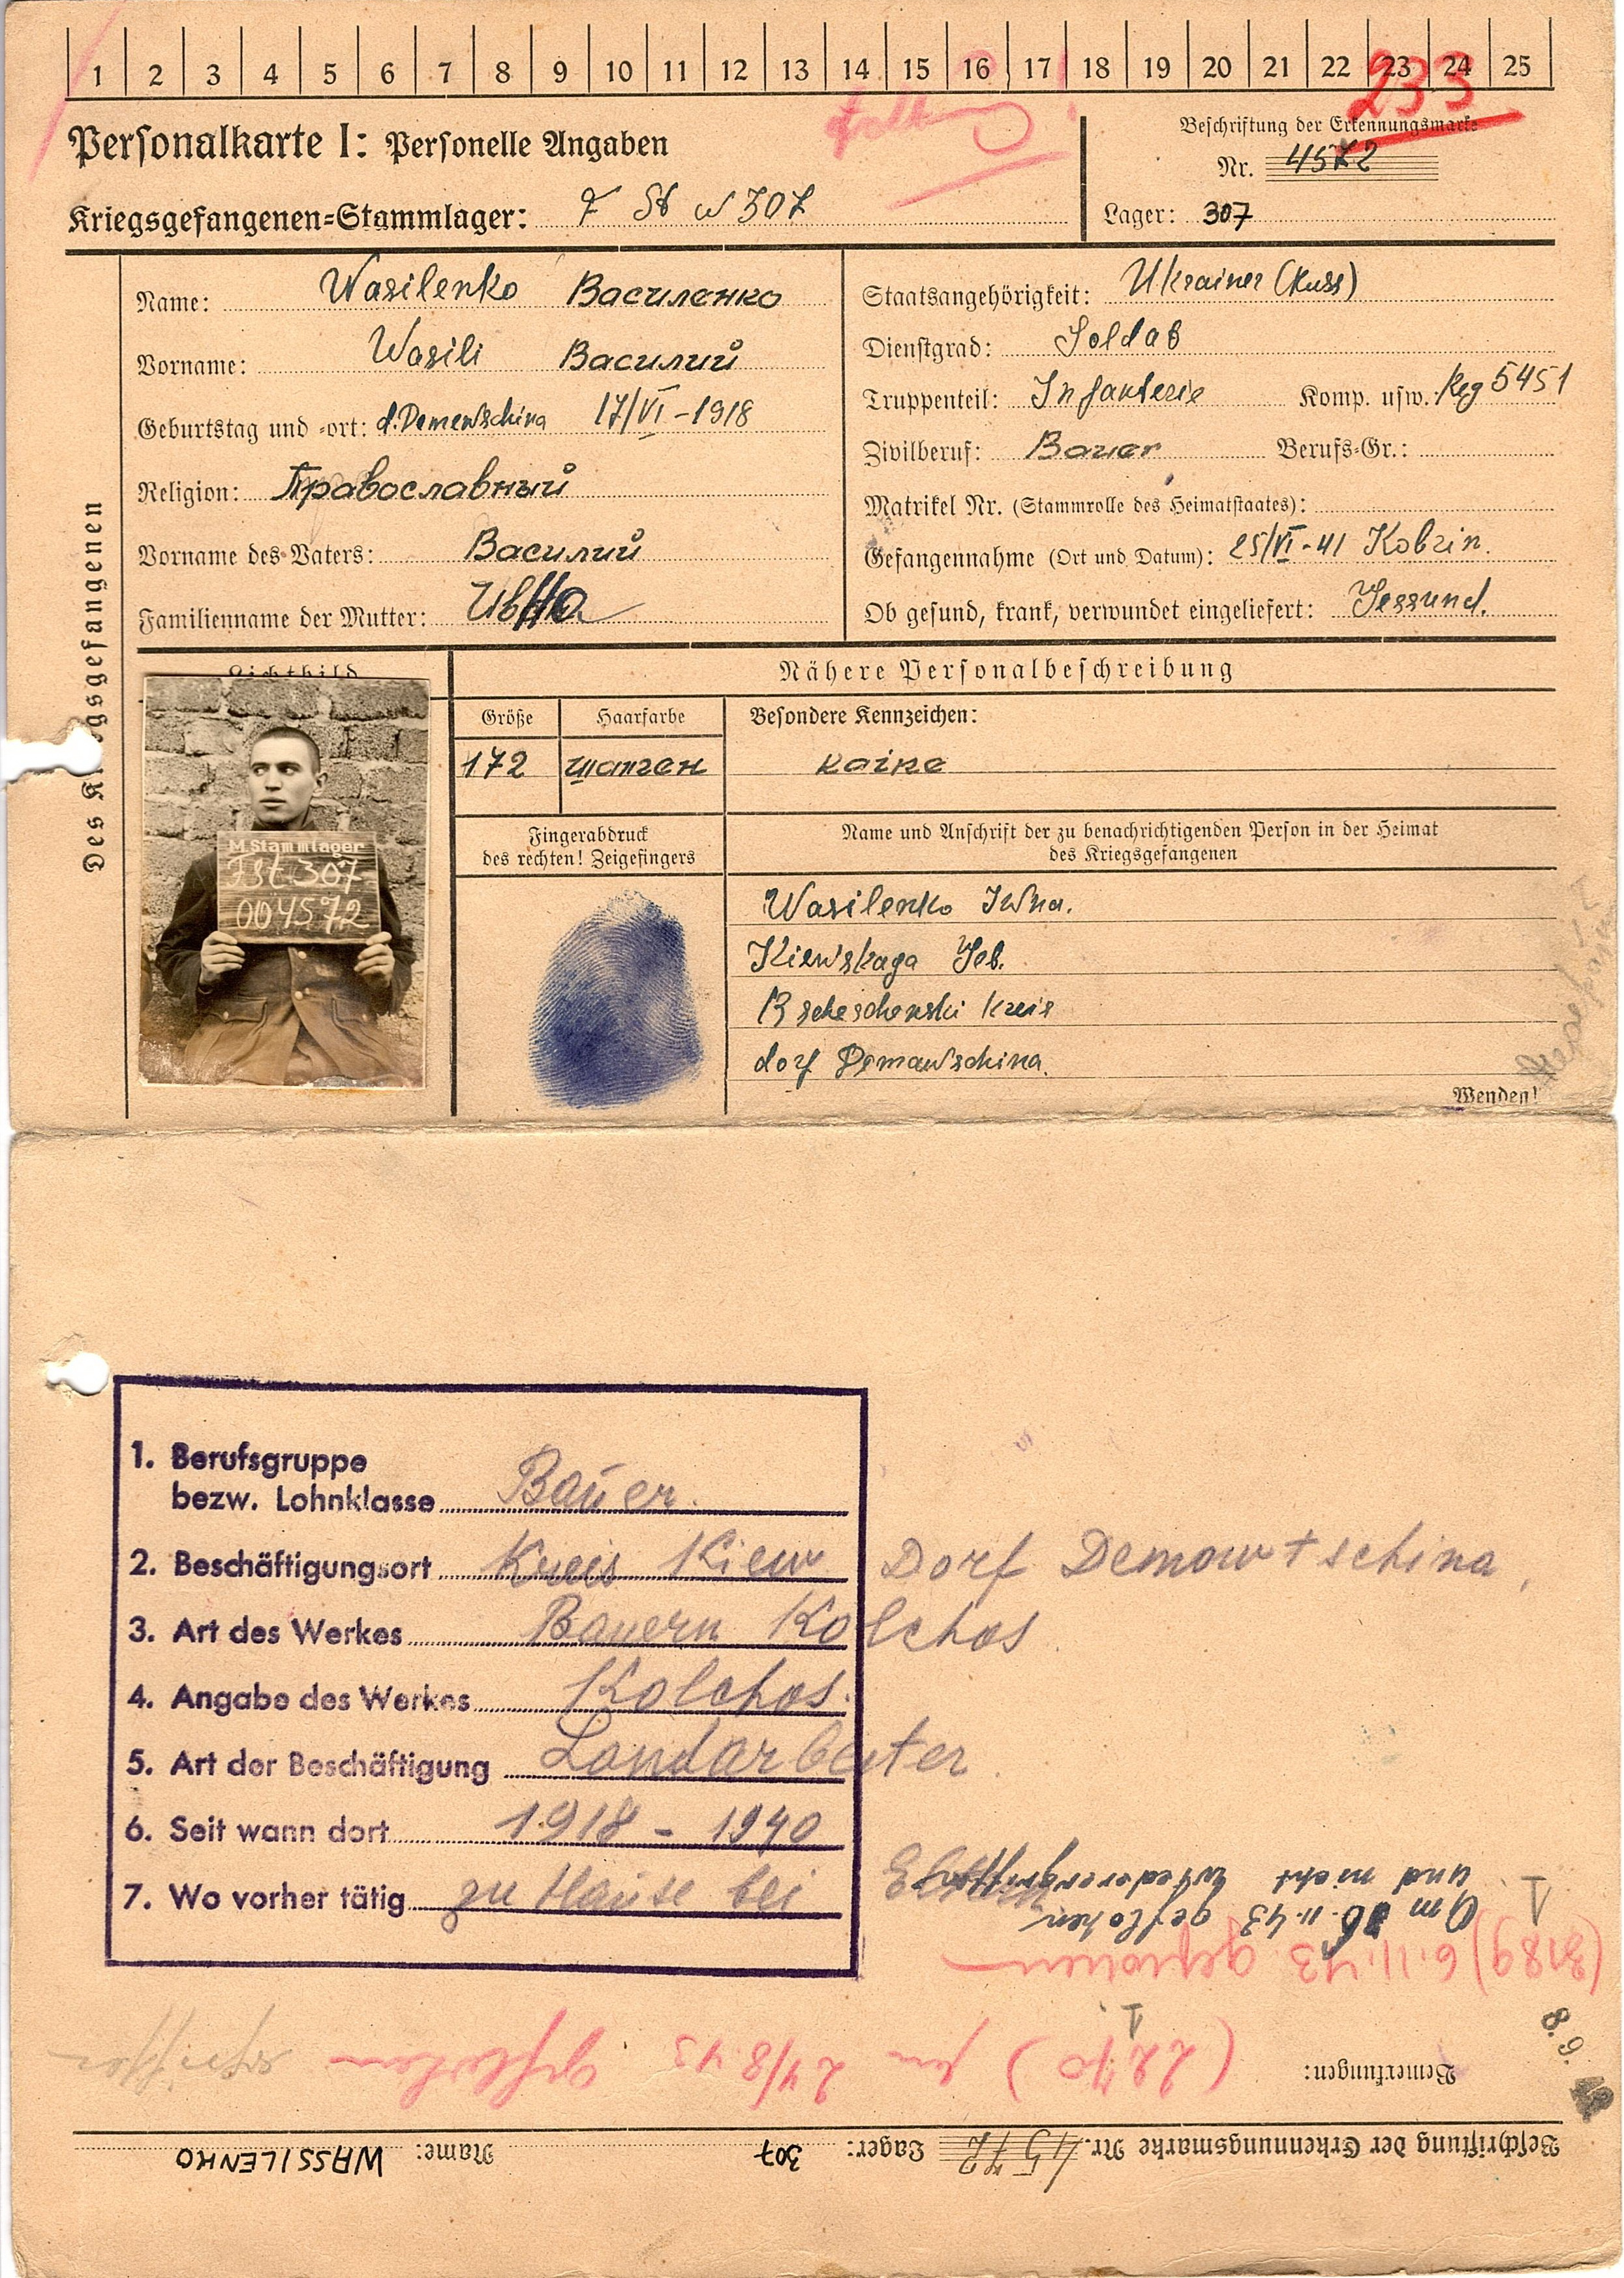 1 2 3 4 5 6 7 8 9 10 11 12 13 14 15 16 17 18 19 20 21 22 23 24 25
233
Personalkarte I: Personelle Angaben
Beschriftung der Erkennungsmarke
Nr. 4572
Kriegsgefangenen=Stammlager: 307
Lager: 307
Des Kriegsgefangenen
Name: Wasilenko Василенко
Vorname: Wasili Василий
Geburtstag und =ort: d. Demewschina 17/VI-1918
Religion: Православный
Vorname des Vaters: Василий
Familienname der Mutter:
Staatsangehörigkeit: Ukrainer (Russ)
Dienstgrad: Soldat
Truppenteil: Infanterie Komp. usw.: Reg 5451
Zivilberuf: Bauer Berufs=Gr.:
Matrikel Nr. (Stammrolle des Heimatstaates):
Gefangennahme (Ort und Datum): 25/VI-41 Kobrin.
Ob gesund, krank, verwundet eingeliefert: Gessund.
Lichtbild
Nähere Personalbeschreibung
Größe
Haarfarbe
Besondere Kennzeichen:
172
шатген
kaine
M. Stammlager
Fst. 307
004572
Fingerabdruck
des rechten! Zeigefingers
Name und Anschrift der zu benachrichtigenden Person in der Heimat
des Kriegsgefangenen
Wasilenko Iwna.
Kiewskaga Gob.
kreis
dorf Demawschina.
Wenden!
1. Berufsgruppe
bezw. Lohnklasse Bauer.
2. Beschäftigungsort Kreis Kiew Dorf Demowtschina,
3. Art des Werkes Bauern Kolchos
4. Angabe des Werkes Kolchos.
5. Art der Beschäftigung Landarbeiter.
6. Seit wann dort 1918 - 1940
7. Wo vorher tätig zu Hause bei Eltern
Beschriftung der Erkennungsmarke Nr. 4572 Lager: 307 Name: WASSILENKO
Bemerkungen: (2270) 24/8.43 geflohen ergriffen
8.9.43
(3189) 6.11.43 geflohen
Am 6.11.43 geflohen
und nicht wiederergriffen